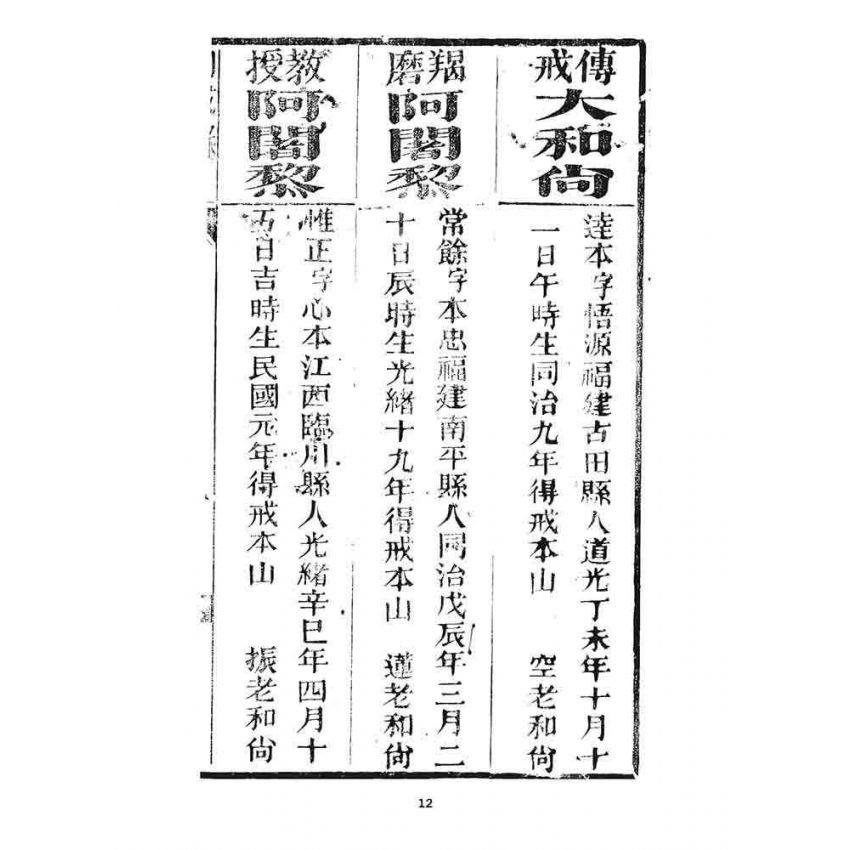 傳戒大和尙
達本字悟源福建古田縣人道光丁未年十月十
一日午時生同治九年得戒本山　空老和尙
羯磨阿闍黎
常餘字本忠福建南平縣人同治戊辰年三月二
十日辰時生光緒十九年得戒本山　蓮老和尙
教授阿闍黎
惟正字心本江西臨川縣人光緒辛巳年四月十
五日吉時生民國元年得戒本山　振老和尙
12